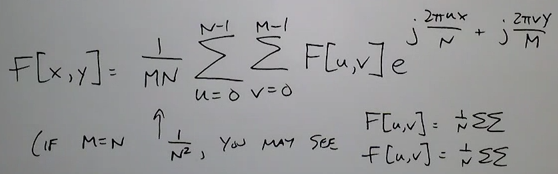 F[x,y] = 1/MN N-1 Σ u=0 M-1 Σ v=0 F[u,v] e j 2πux/N + j 2πvy/M
(IF M=N ↑ 1/N², YOU MAY SEE F[u,v] = 1/N ΣΣ
f[u,v] = 1/N ΣΣ